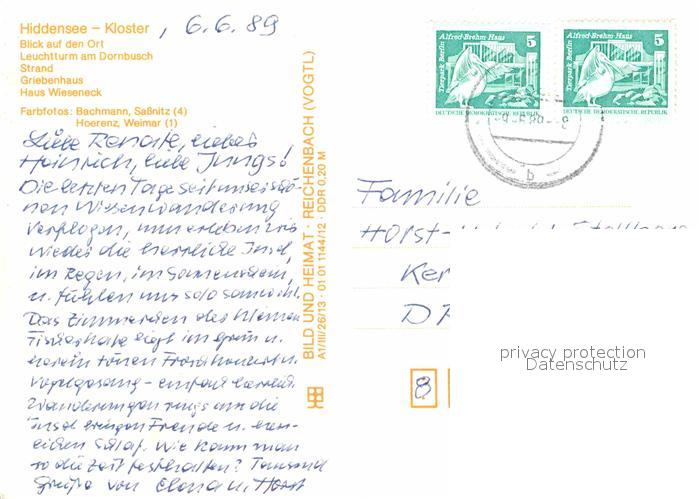 Hiddensee – Kloster , 6.6.89
Blick auf den Ort
Leuchtturm am Dornbusch
Strand
Griebenhaus
Haus Wieseneck
Farbfotos: Bachmann, Saßnitz (4)
Hoerenz, Weimar (1)
Liebe Renate, lieber
Heinrich, liebe Jungs!
Die letzten Tage seit unserer
Wiesenwanderung
verflogen, nun erleben wir
wieder die herrliche Insel,
im Regen, im
u. fühlen uns
Das der kleinen
liegt im grün u.
herein tönen Froschkonzert u.
Vogelgesang – einfach herrlich.
Wanderungen rings um die
Insel bringen Freude u.
Schlaf. Wie kann man
so die Zeit festhalten? Tausend
Grüße von u. Horst
BILD UND HEIMAT · REICHENBACH (VOGTL)
A1/III/26/13 · 01 01 1144/12 · DDR 0,20 M
Alfred-Brehm-Haus 5
Tierpark Berlin
DEUTSCHE DEMOKRATISCHE REPUBLIK
Alfred-Brehm-Haus 5
Tierpark Berlin
DEUTSCHE DEMOKRATISCHE REPUBLIK
b
Familie
Horst-
Ker
D
8
privacy protection
Datenschutz